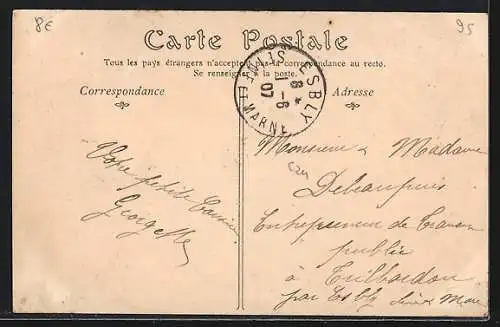 8E
95
Carte Postale
Tous les pays étrangers n'acceptent pas la correspondance au recto.
Se renseigner à la poste.
Correspondance
Adresse
ESBLY
8 *
11-6
07
SNE & MARNE
Votre petite Cousine
Georgette
Monsieur & Madame
Debeaupuis
Entrepreneur de Travaux
publics
à Trilbardou
par Esbly Seine & Marne